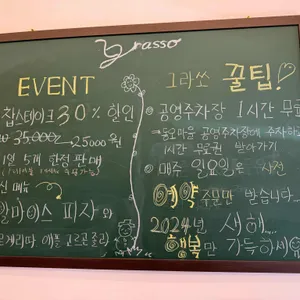 grasso
EVENT
찹스테이크 30% 할인
35,000 25000원
1일 5개 한정 판매
신 메뉴
피자 와
그라쏘 꿀팁!
공영주차장 1시간 무료
공영주차장에 주차하
1시간 무료권 받아가기
매주 일요일은 사전
예약 주문만 받습니다...
2024년 새해...
행복만 가득하세요